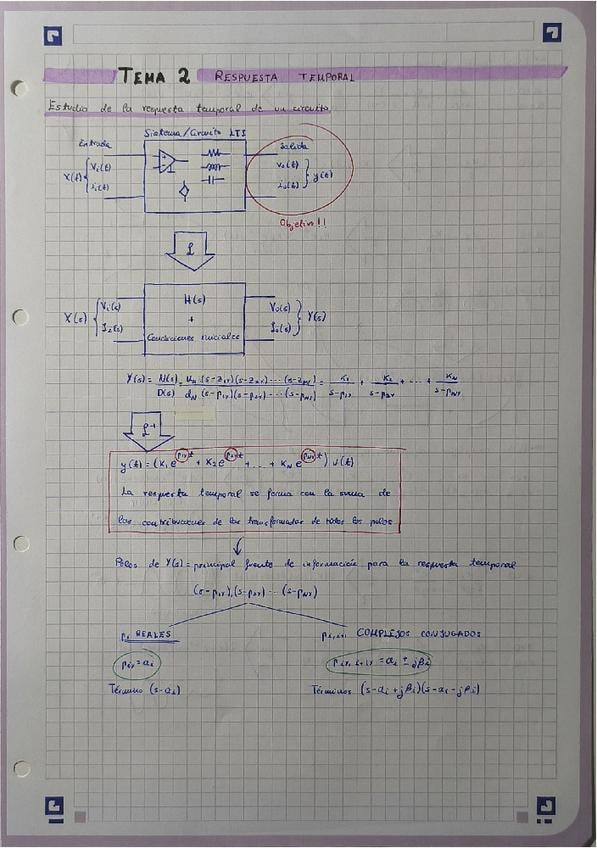 TEMA 2 RESPUESTA TEMPORAL
Estudio de la respuesta temporal de un circuito
Entrada
Sistema/Circuito LTI
Salida
X(t) { Vi(t)
ii(t)
vo(t)
io(t) } y(t)
Objetivo!!
L
X(s) { Vi(s)
H(s)
+
Condiciones iniciales
Vo(s)
Io(s) } Y(s)
Y(s) = N(s)/D(s) = (s-z1Y)(s-z2Y)···(s-zMY) / dN (s-p1Y)(s-p2Y)···(s-pNY) = K1/(s-p1Y) + K2/(s-p2Y) + ··· + KN/(s-pNY)
L⁻¹
y(t) = (K1 e^p1Yt + K2 e^p2Yt + ... + KN e^pNYt) u(t)
La respuesta temporal se forma con la suma de
las contribuciones de las transformadas de todos los polos
Polos de Y(s) = principal fuente de información para la respuesta temporal
(s-p1Y)(s-p2Y)···(s-pNY)
pi REALES
pi,i+1 COMPLEJOS CONJUGADOS
piY = αi
piY, i+1Y = αi ± jβi
Término (s-αi)
Términos (s-αi+jβi)(s-αi-jβi)